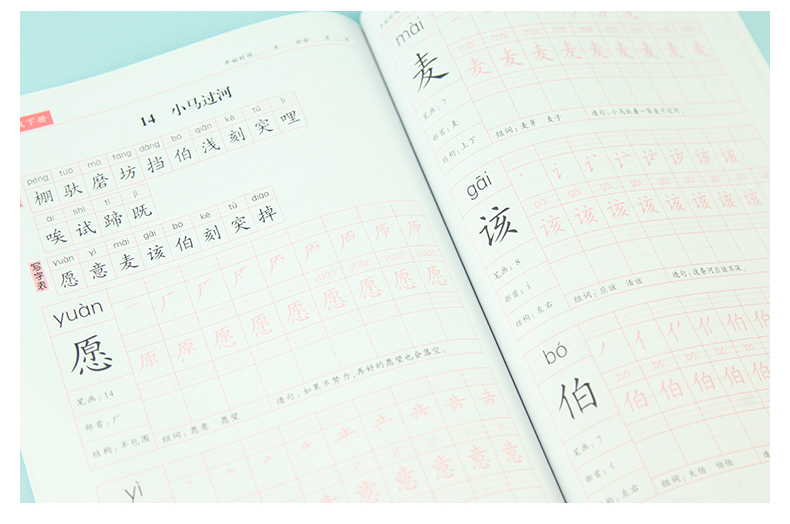 下册
14 小马过河
péng tuó mò fāng dǎng bó qiǎn kè tū li
棚 驮 磨 坊 挡 伯 浅 刻 突 哩
āi shì tí jì
唉 试 蹄 既
写字表
yuàn yì mài gāi bó kè tū diào
愿 意 麦 该 伯 刻 突 掉
yuàn
愿
原 原 原 愿 愿 愿 愿 愿 愿
笔画：14
部首：厂
结构：半包围
组词：愿意 愿望
造句：如果不努力，再好的愿望也会落空。
yì
意 意 意 意 意
mài
麦
麦 麦 麦 麦 麦 麦 麦
笔画：7
部首：麦
结构：上下
组词：麦芽 麦子
造句：小马驮着一袋麦子过河。
gāi
该
该 该 该 该 该 该 该 该
笔画：8
部首：讠
结构：左右
组词：应该 活该
造句：这条河应该不深。
bó
伯
伯 伯 伯 伯 伯
笔画：7
部首：亻
结构：左右
组词：大伯 伯伯